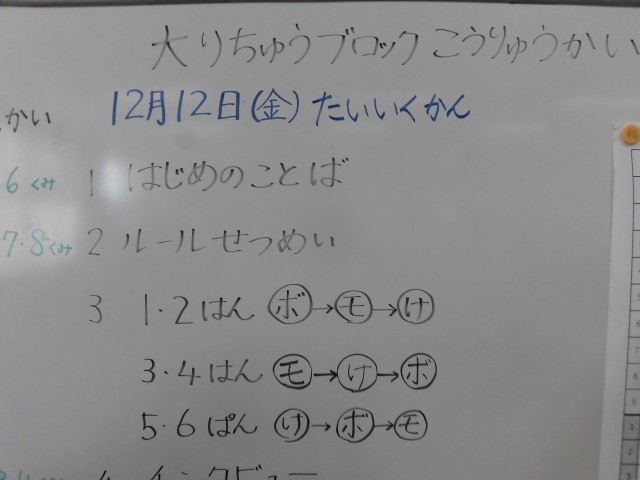 大りちゅうブロックこうりゅうかい
かい 12月12日(金)たいいくかん
6くみ 1 はじめのことば
7・8くみ 2 ルールせつめい
3 1・2はん ボ→モ→け
3・4はん モ→け→ボ
5・6ぱん け→ボ→モ